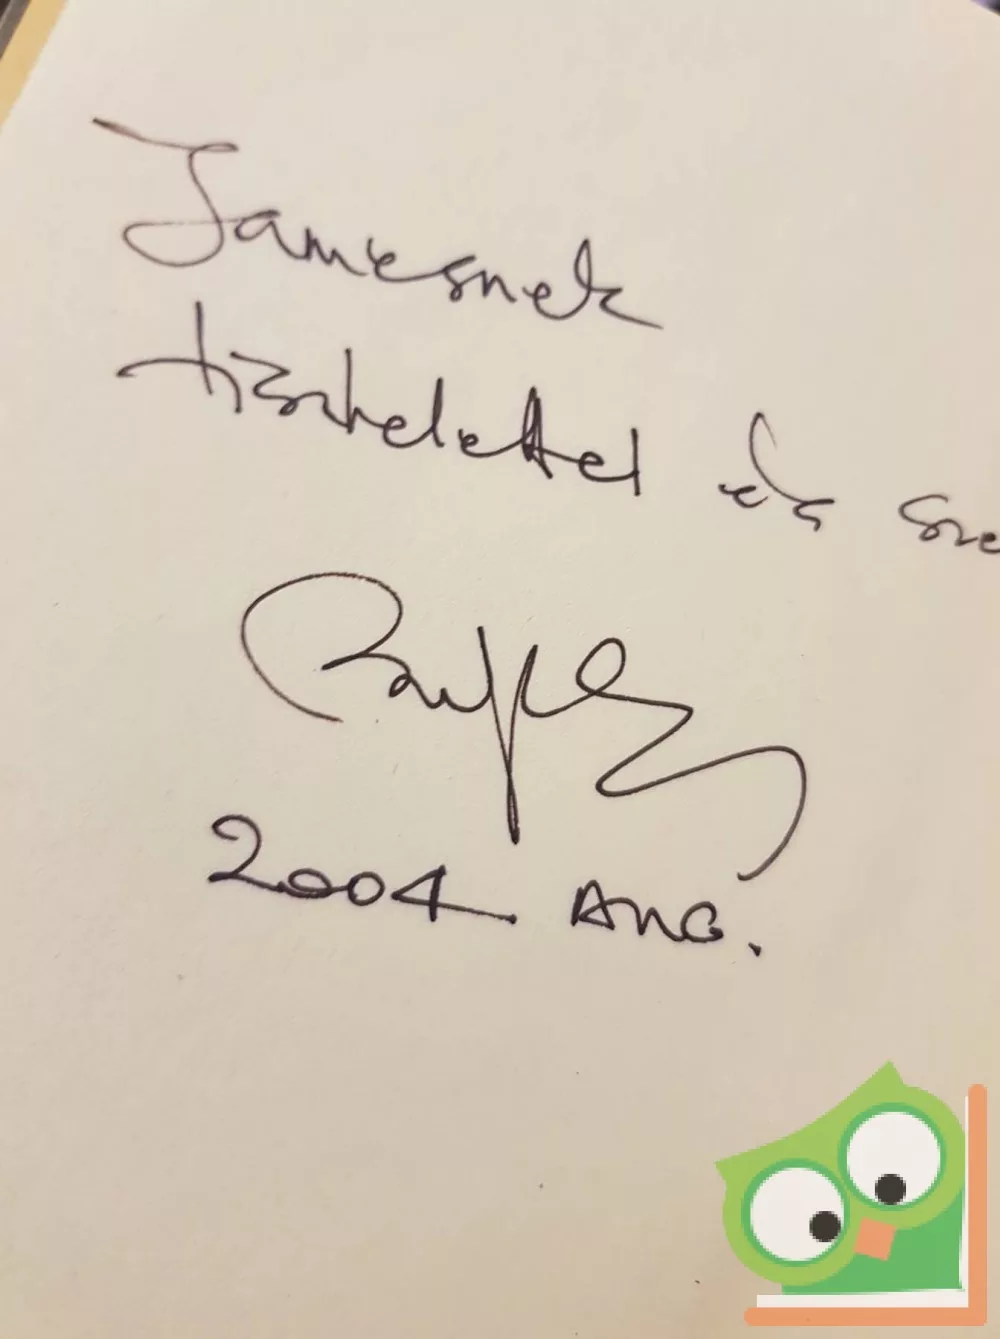 Jamesnek
tisztelettel és sze
2004 Aug.